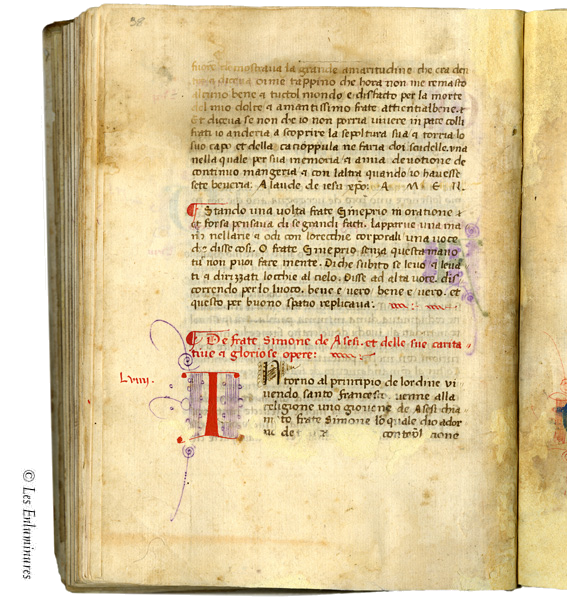 38
fuore demostraua la grande amaritudine che era den
tro & diceua oime tappino che hora non me remasto
alcuno bene & tuctol mondo e disfacto per la morte
del mio dolce & amantissimo frate attientialbene. &
Et diceua se non che io non porria uiuere in pace colli
frati io anderia a scoprire la sepoltura sua & torria lo
suo capo et della cacioppula ne faria doi scudelle. una
nella quale per sua memoria & a mia deuotione de
continuo mangeria & con laltra quando io hauesse
sete beueria. A laude de iesu xpo. A M E N.
Stando una uolta frate Gineprio in oratione &
et forsa pensaua di se grandi facti. Lapparue una ma
no nellarie & odi con lorecchie corporali una uoce
che disse cosi. O frate Gineprio senza questa mano
tu non puoi fare niente. Di che subito se leuo & leua
ti & dirizati locchie al cielo. Disse ad alta uoce. dis
correndo per lo luoco. bene e uero bene e uero. et
questo per buono spatio replicaua.
De frate Simone de Asesi. et delle sue carita
tiue & gloriose opere:
Lviiij.
INtorno al principio de lordine ui
uendo santo francesco. uenne alla
religione uno giouene de Asesi chia
mato frate Simone lo quale dio ador
no de
© Les Enluminures